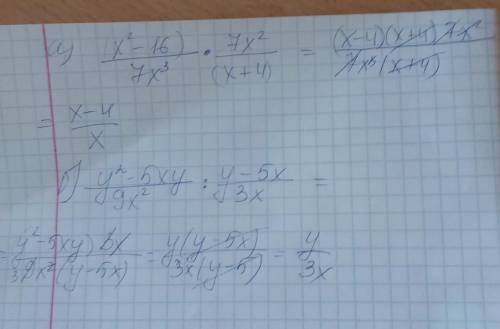 а) (x² - 16)/7x³ · 7x²/(x+4) = (x-4)(x+4) 7x²/7x³(x+4)
= x-4/x
б) y² - 5xy/9x² : y - 5x/3x =
= y² - 5xy) 3x/39x² (y-5x) = y(y-5x)/3x(y-5) = y/3x